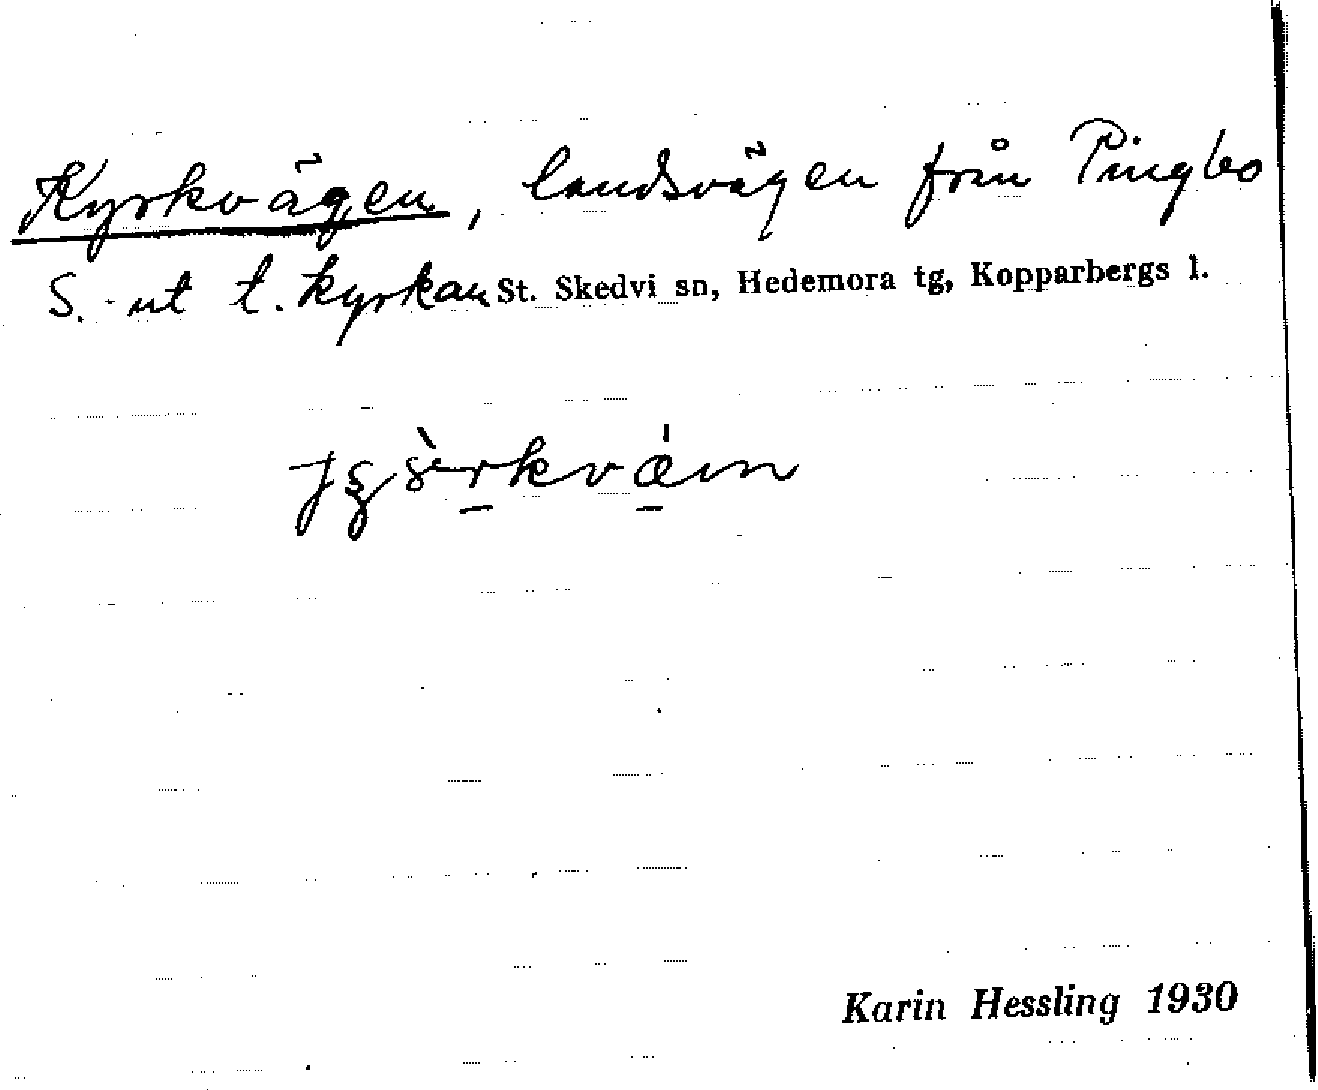 Kyrkvägen, landsvägen från Pingbo
S.-ut t. kyrkan St. Skedvi sn, Hedemora tg, Kopparbergs l.
Karin Hessling 1930